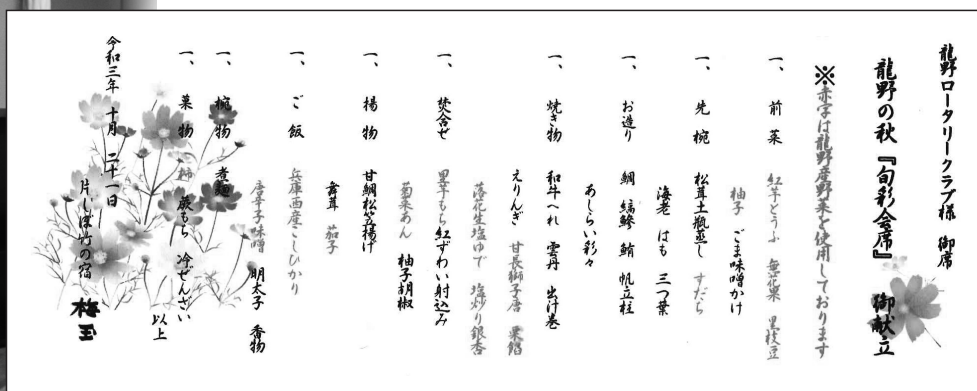 龍野ロータリークラブ様 御席
龍野の秋『旬彩会席』 御献立
※赤字は龍野産野菜を使用しております
一、 前菜 紅芋とうふ 無花果 黒枝豆
柚子 ごま味噌かけ
一、 先椀 松茸土瓶蒸し すだち
海老 はも 三つ葉
一、 お造り 鯛 縞鯵 鮪 帆立柱
あしらい彩々
一、 焼き物 和牛へれ 雲丹 出汁巻
えりんぎ 甘長獅子唐 栗餡
落花生塩ゆで 塩炒り銀杏
一、 焚合せ 里芋もち紅ずわい射込み
菊菜あん 柚子胡椒
一、 揚物 甘鯛松笠揚げ
舞茸 茄子
一、 ご飯 兵庫西産こしひかり
唐辛子味噌 明太子 香物
一、 椀物 煮麺
一、 菓物 柿 蕨もち 冷ぜんざい
以上
令和三年 十月 二十一日
片しぼ竹の宿 梅玉